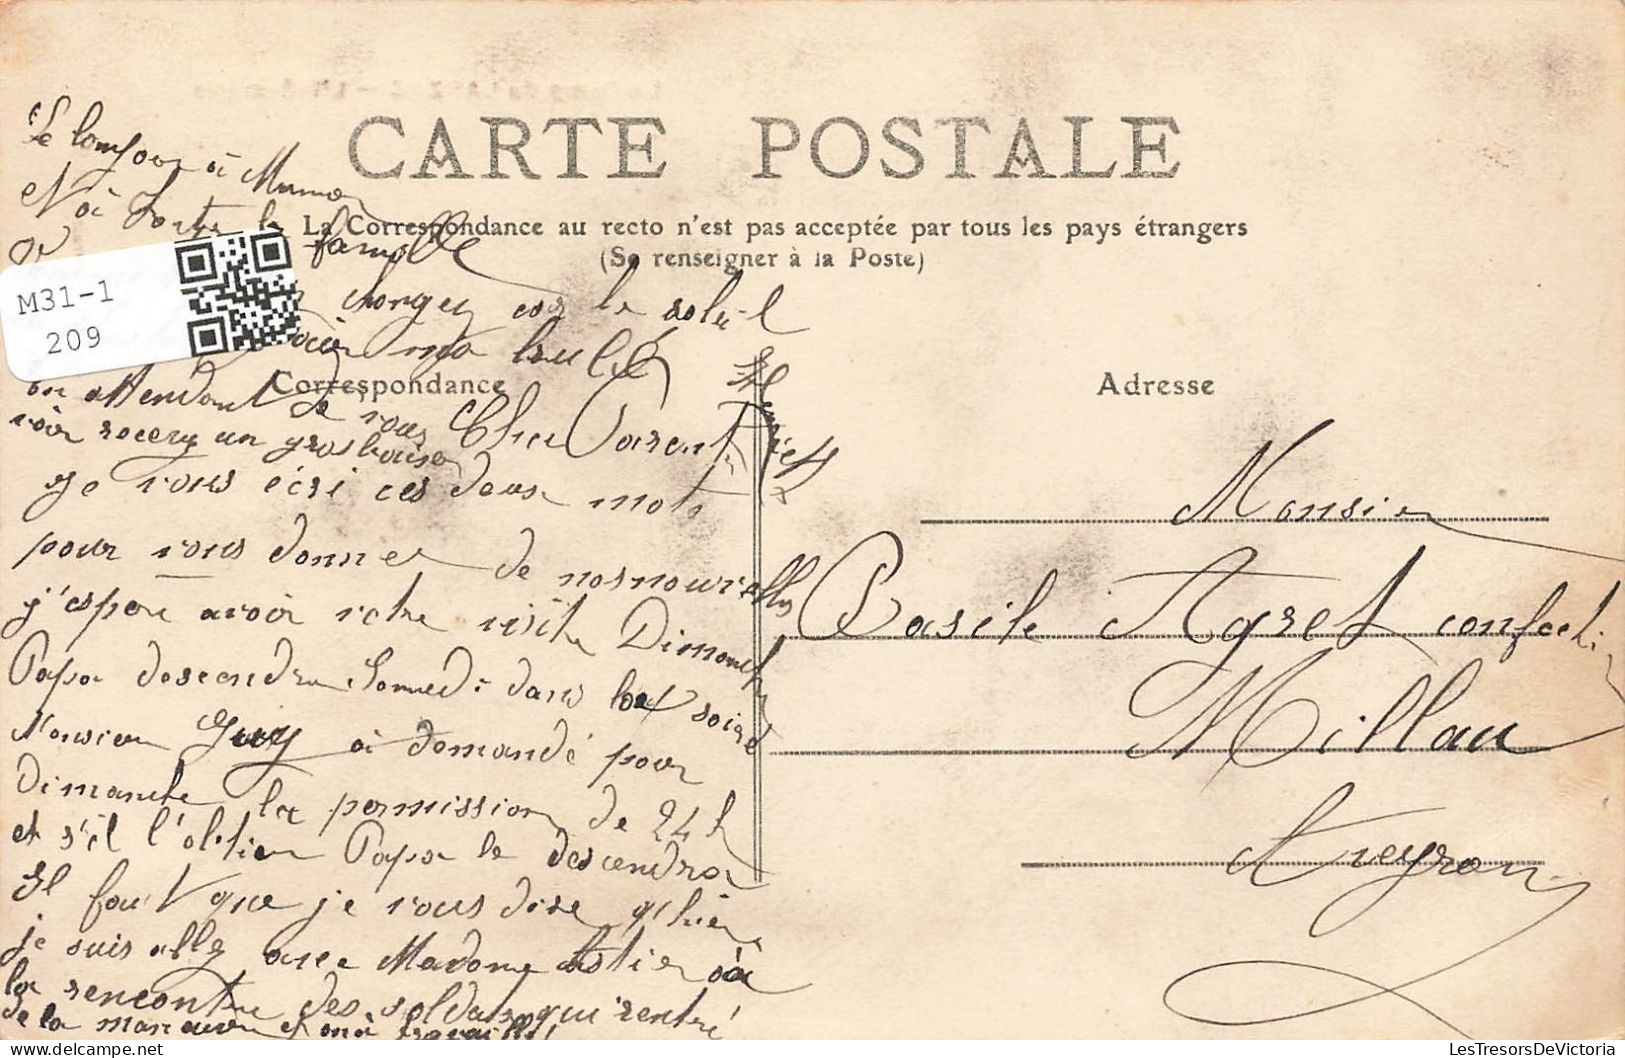 CARTE POSTALE
La Correspondance au recto n'est pas acceptée par tous les pays étrangers
(Se renseigner à la Poste)
Correspondance
Adresse
M31-1
209
Le bonjour à
famille
le soleil
brulé
en attendant de vous
voir recevez un gros baiser
Henriet
Cher Parent
je vous écri ces deux mots
pour vous donner de nos nouvelles
j'espere avoir votre visite Dimanche
Papa descendra Samedi dans la soiré
Monsieur Guy à demandé pour
Dimanche la permission de 24 h
et s'il l'obtien Papa le descendra
Il faut que je vous dise qu'hier
je suis allez avec Madame
la rencontre des soldats qui rentré
de la manœuvre
Monsieur
Basile Agret confecti
Millau
Aveyron
LesTresorsDeVictoria